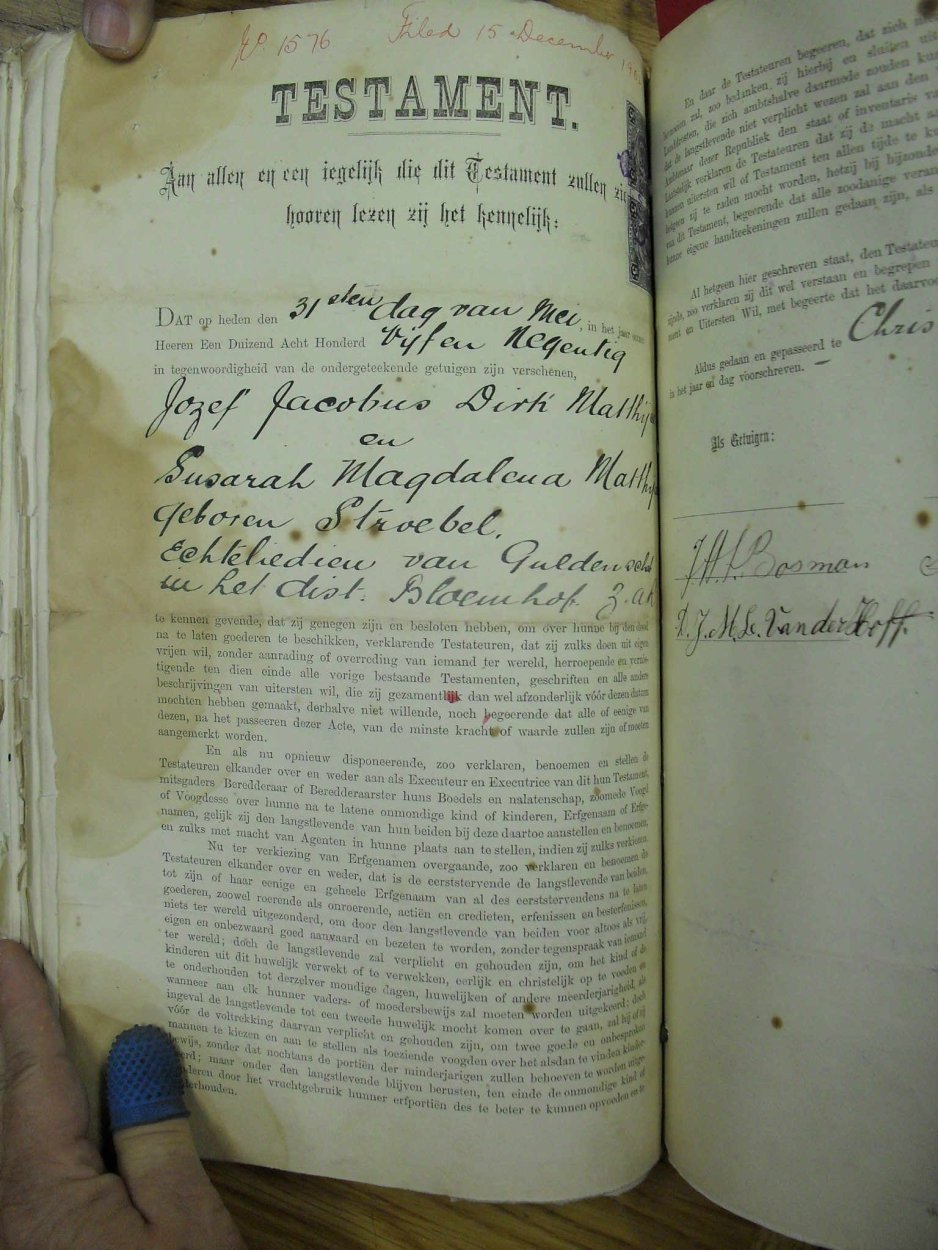 No 1576 Filed 15 December
TESTAMENT.
Aan allen en een iegelijk die dit Testament zullen
hooren lezen zij het kennelijk:
DAT op heden den 31sten dag van Mei, in het jaar
Heeren Een Duizend Acht Honderd Vijf en Negentig
in tegenwoordigheid van de ondergeteekende getuigen zijn verschenen,
Jozef Jacobus Dirk
en
Susarah Magdalena
geboren Stroebel.
Echteliedien van
in het dist. Bloemhof. Z.a.R
te kennen gevende, dat zij genegen zijn en besloten hebben, om over hunne bij den dood
na te laten goederen te beschikken, verklarende Testateuren, dat zij zulks doen uit eigen
vrijen wil, zonder aanrading of overreding van iemand ter wereld, herroepende en vernie-
tigende ten dien einde alle vorige bestaande Testamenten, geschriften en alle andere
beschrijvingen van uitersten wil, die zij gezamentlijk dan wel afzonderlijk vóór dezen datum
mochten hebben gemaakt, derhalve niet willende, noch begeerende dat alle of eenige van
dezen, na het passeeren dezer Acte, van de minste kracht of waarde zullen zijn of moeten
aangemerkt worden.
En als nu opnieuw disponeerende, zoo verklaren, benoemen en stellen de
Testateuren elkander over en weder aan als Executeur en Executrice van dit hun Testament,
mitsgaders Beredderaar of Beredderaarster huns Boedels en nalatenschap, zoomede Voogd
of Voogdesse over hunne na te latene onmondige kind of kinderen, Erfgenaam of Erfge-
namen, gelijk zij den langstlevende van hun beiden bij deze daartoe aanstellen en benoemen,
en zulks met macht van Agenten in hunne plaats aan te stellen, indien zij zulks verkiezen.
Nu ter verkiezing van Erfgenamen overgaande, zoo verklaren en benoemen de
Testateuren elkander over en weder, dat is de eerststervende de langstlevende van beiden,
tot zijn of haar eenige en geheele Erfgenaam van al des eerststervendens na te laten
goederen, zoowel roerende als onroerende, actiën en credieten, erfenissen en besterfenissen,
niets ter wereld uitgezonderd, om door den langstlevende van beiden voor altoos als vrij,
eigen en onbezwaard goed aanvaard en bezeten te worden, zonder tegenspraak van iemand
ter wereld; doch de langstlevende zal verplicht en gehouden zijn, om het kind of de
kinderen uit dit huwelijk verwekt of te verwekken, eerlijk en christelijk op te voeden en
te onderhouden tot derzelver mondige dagen, huwelijken of andere meerderjarigheid, als
wanneer aan elk hunner vaders- of moedersbewijs zal moeten worden uitgekeerd; doch
ingeval de langstlevende tot een tweede huwelijk mocht komen over te gaan, zal hij of zij
vóór de voltrekking daarvan verplicht en gehouden zijn, om twee goede en onbesproken
mannen te kiezen en aan te stellen als toeziende voogden over het alsdan te vinden kinder-
bewijs, zonder dat nochtans de portiën der minderjarigen zullen behoeven te worden uitge-
maar onder den langstlevende blijven berusten, ten einde de onmondige kind of
door het vruchtgebruik hunner erfportiën des te beter te kunnen opvoeden en te
En daar de Testateuren begeeren, dat zich
zal, zoo bedanken zij hierbij en sluiten
die zich ambtshalve daarmede zouden
de langstlevende niet verplicht wezen zal aan den
dezer Republiek den staat of inventaris
verklaren de Testateuren dat zij de macht
uitersten wil of Testament ten allen tijde te
zij te raden mocht worden, hetzij bij
van dit Testament, begeerende dat alle zoodanige
hunne eigene handteekeningen zullen gedaan zijn, als
Al hetgeen hier geschreven staat, den
zoo verklaren zij dit wel verstaan en begrepen
en Uitersten Wil, met begeerte dat het
Aldus gedaan en gepasseerd te Chris
in het jaar en dag voorschreven.
Als Getuigen:
Bosman
Van der Hoff.